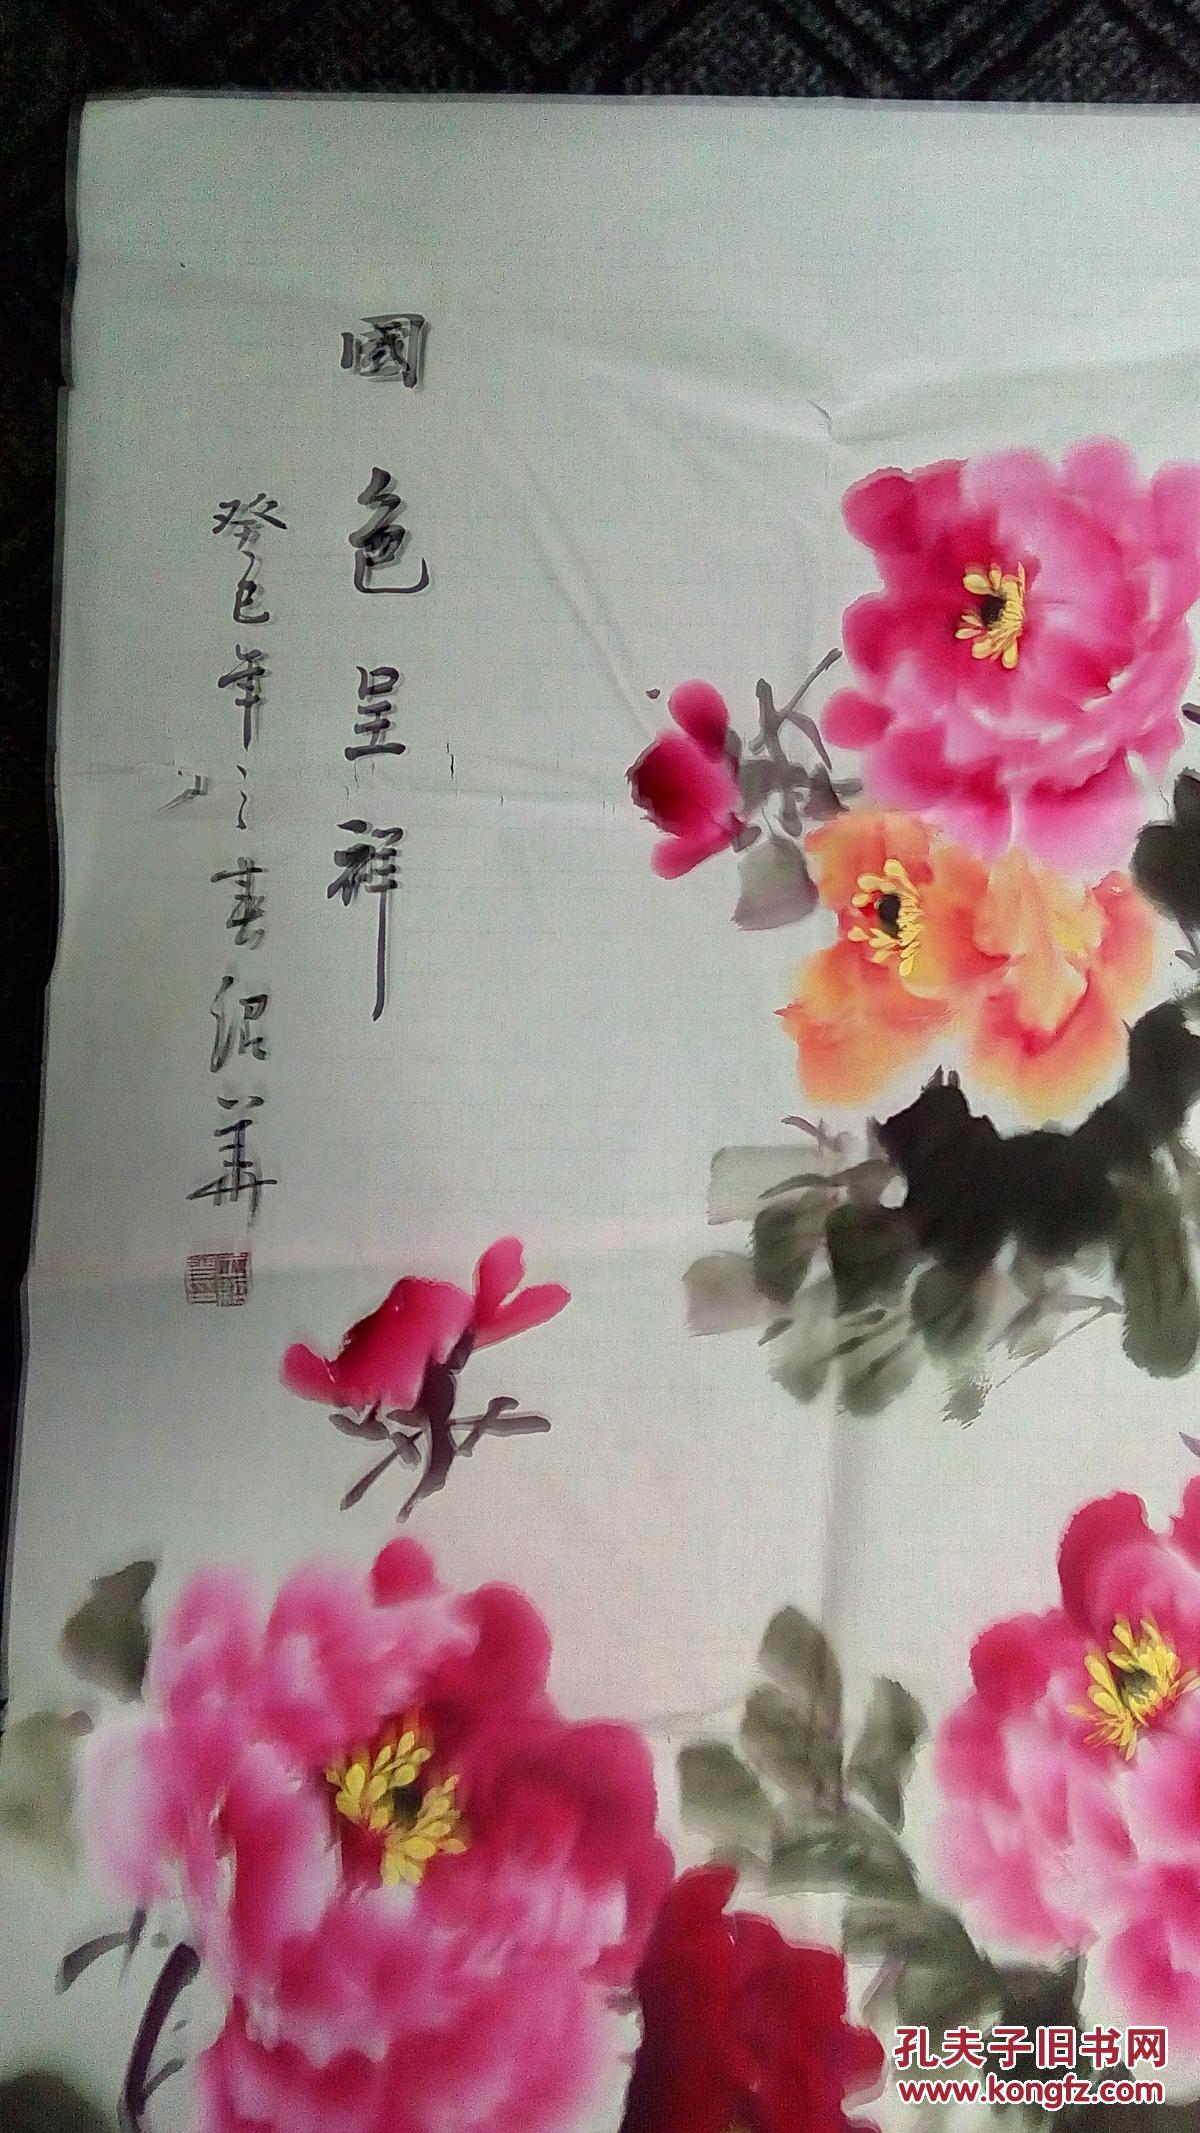 國色呈祥
癸巳年之春绍華
孔夫子旧书网
www.kongfz.com